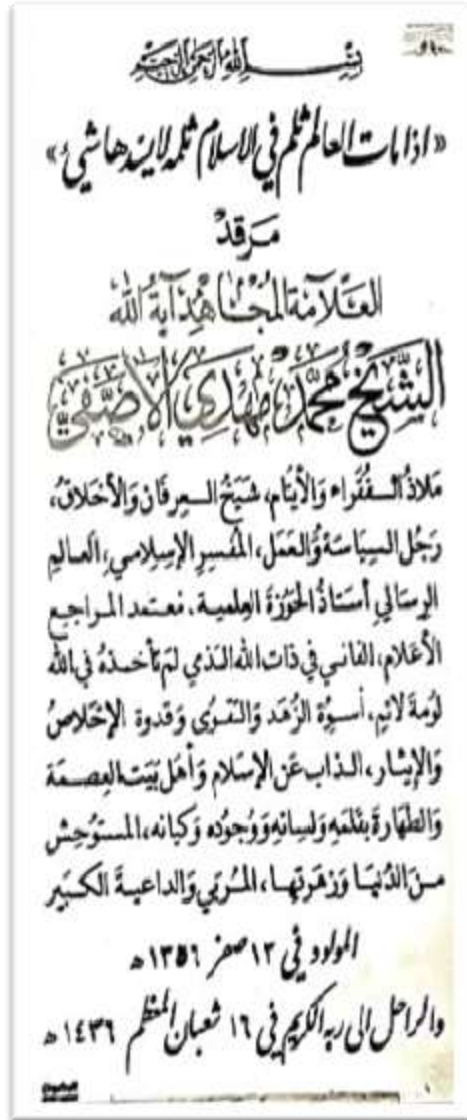 بسم الله الرحمن الرحيم
«اذا مات العالم ثلم في الاسلام ثلمة لايسدها شيئ»
مرقد
العلامة المجاهد آية الله
الشيخ محمد مهدي الآصفي
ملاذ الفقراء والأيتام، شيخ العرفان والأخلاق،
رجل السياسة والعمل، المفسر الإسلامي، العالم
الرسالي أستاذ الحوزة العلمية، معتمد المراجع
الأعلام، الفاني في ذات الله الذي لم تأخذه في الله
لومة لائم، أسوة الزهد والتقوى وقدوة الإخلاص
والإيثار، الذاب عن الإسلام وأهل بيت العصمة
والطهارة بقلمه ولسانه ووجوده وكيانه، المستوحش
من الدنيا وزهرتها، المربي والداعية الكبير
المولود في ١٣ صفر ١٣٥٦ه
والراحل الى ربه الكريم في ١٦ شعبان المعظم ١٤٣٦ه